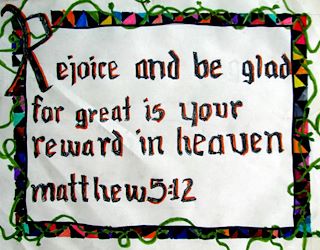 Rejoice and be glad
for great is your
reward in heaven
matthew 5:12